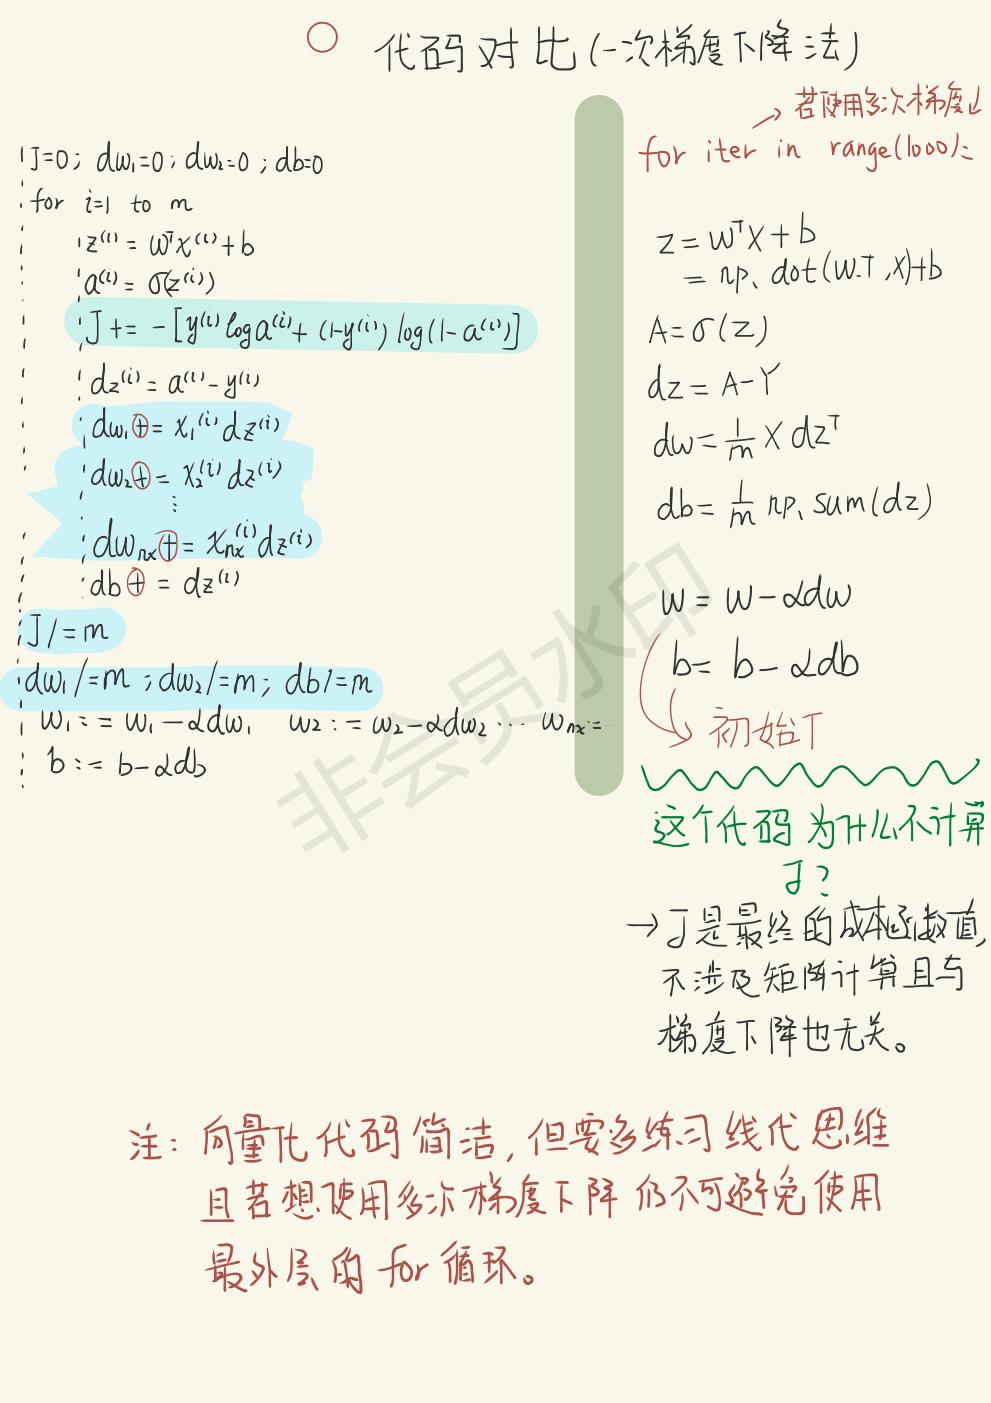 代码对比(一次梯度下降法)
J=0; dw₁=0; dw₂=0; db=0
for i=1 to m
z⁽ⁱ⁾ = wᵀx⁽ⁱ⁾+b
a⁽ⁱ⁾ = σ(z⁽ⁱ⁾)
J += -[y⁽ⁱ⁾loga⁽ⁱ⁾+(1-y⁽ⁱ⁾)log(1-a⁽ⁱ⁾)]
dz⁽ⁱ⁾ = a⁽ⁱ⁾-y⁽ⁱ⁾
dw₁+= x₁⁽ⁱ⁾dz⁽ⁱ⁾
dw₂+= x₂⁽ⁱ⁾dz⁽ⁱ⁾
⋮
dwₙₓ+= xₙₓ⁽ⁱ⁾dz⁽ⁱ⁾
db += dz⁽ⁱ⁾
J/=m
dw₁/=m; dw₂/=m; db/=m
w₁:= w₁-αdw₁ w₂:= w₂-αdw₂ ... wₙₓ:= ...
b := b-αdb
若使用多次梯度↓
for iter in range(1000):
z = wᵀX+b
= np.dot(w.T,X)+b
A=σ(z)
dz = A-Y
dw= 1/m X dzᵀ
db= 1/m np.sum(dz)
w = w-αdw
b= b-αdb
初始T
这个代码为什么不计算
J?
→J是最终的成本函数值,
不涉及矩阵计算且与
梯度下降也无关。
注: 向量化代码简洁,但要多练习线代思维
且若想使用多次梯度下降仍不可避免使用
最外层的for循环。
非会员水印